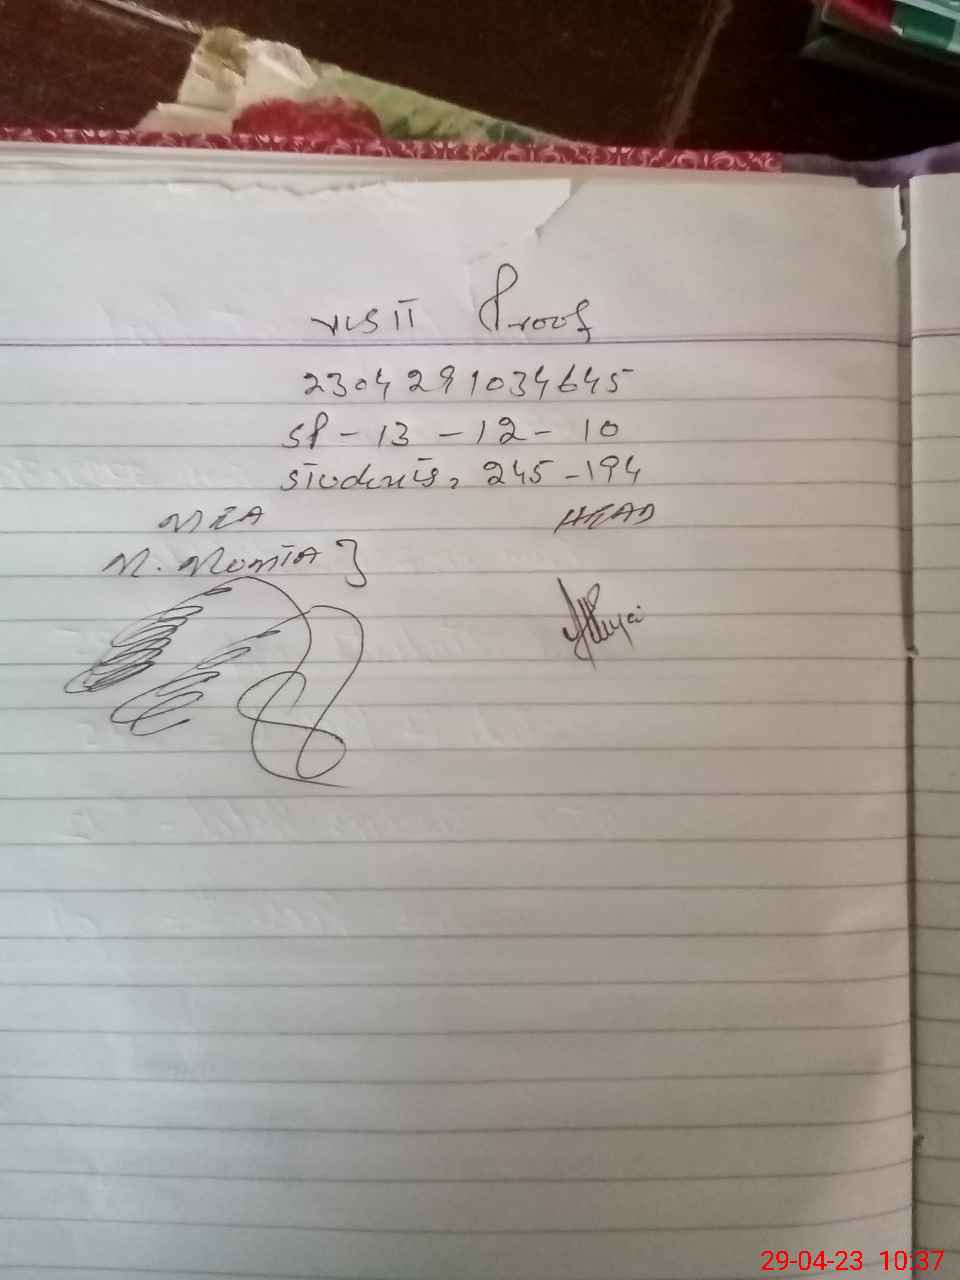 VISIT Proof
2304291034645
SP - 13 - 12 - 10
Students, 245 - 194
MEA HEAD
M.
29-04-23 10:37